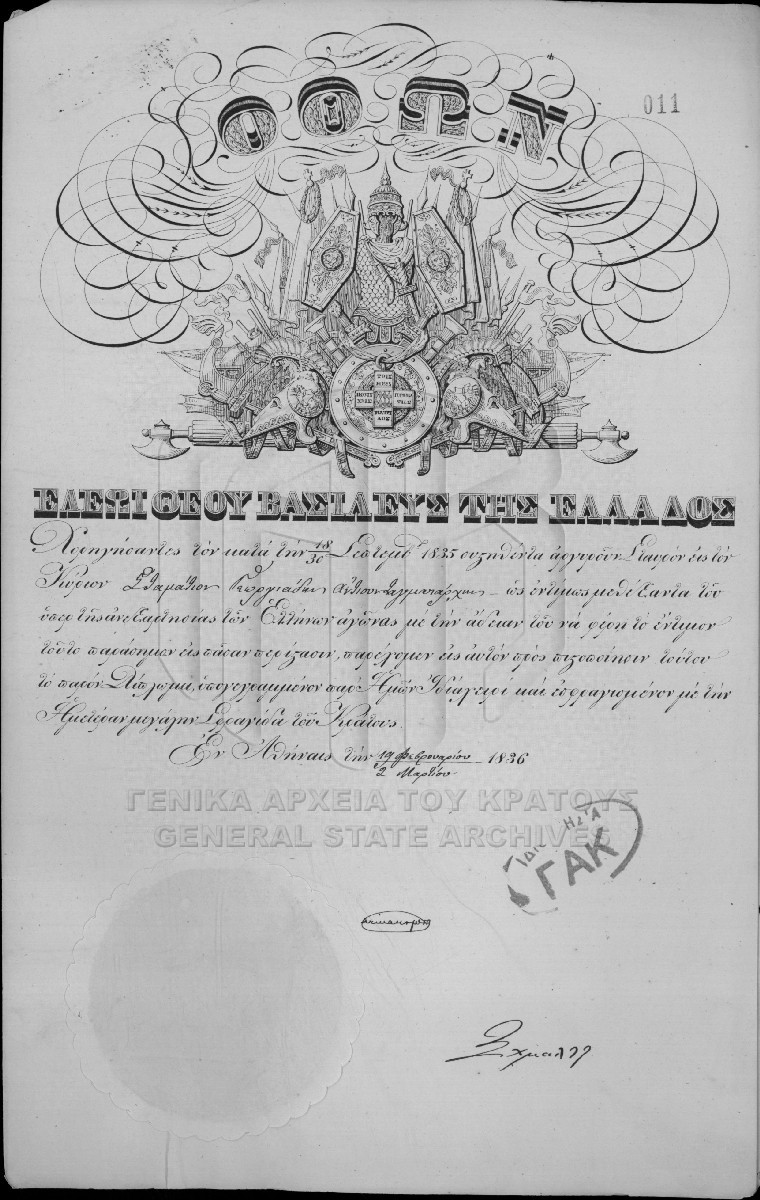 ΟΘΩΝ
011
ΤΟΙΣ
ΗΡΩΣΙ
ΠΑΤΡΙ
ΔΟΣ
ΕΛΕΩι ΘΕΟΥ ΒΑΣΙΛΕΥΣ ΤΗΣ ΕΛΛΑΔΟΣ
Χορηγήσαντες τὸν κατὰ τὴν 18/30 Σεπτεμβ. 1835 συστηθέντα ἀργυροῦν Σταυρὸν εἰς τὸν
Κύριον Σταμάτιον Γεωργιάδην Ἀνθυπουταγματάρχην ὡς ἐντίμως μεθέξαντα τοῦ
ὑπὲρ τῆς ἀνεξαρτησίας τῶν Ἑλλήνων ἀγῶνας μὲ τὴν ἄδειαν τοῦ νὰ φέρῃ τὸ ἔντιμον
τοῦτο παράσημον εἰς πᾶσαν περίστασιν, παρέχομεν εἰς αὐτὸν πρὸς πιστοποίησιν τούτου
τὸ παρὸν Δίπλωμα, ὑπογεγραμμένον παρ' Ἡμῶν Ἰδιαχείρως καὶ ἐσφραγισμένον μὲ τὴν
Ἡμετέραν μεγάλην Σφραγίδα τοῦ Κράτους.
Ἐν Ἀθήναις τὴν 19 Φεβρουαρίου / 2 Μαρτίου 1836
ΓΕΝΙΚΑ ΑΡΧΕΙΑ ΤΟΥ ΚΡΑΤΟΥΣ
GENERAL STATE ARCHIVES
ΓΑΚ
Σχμαλτζ